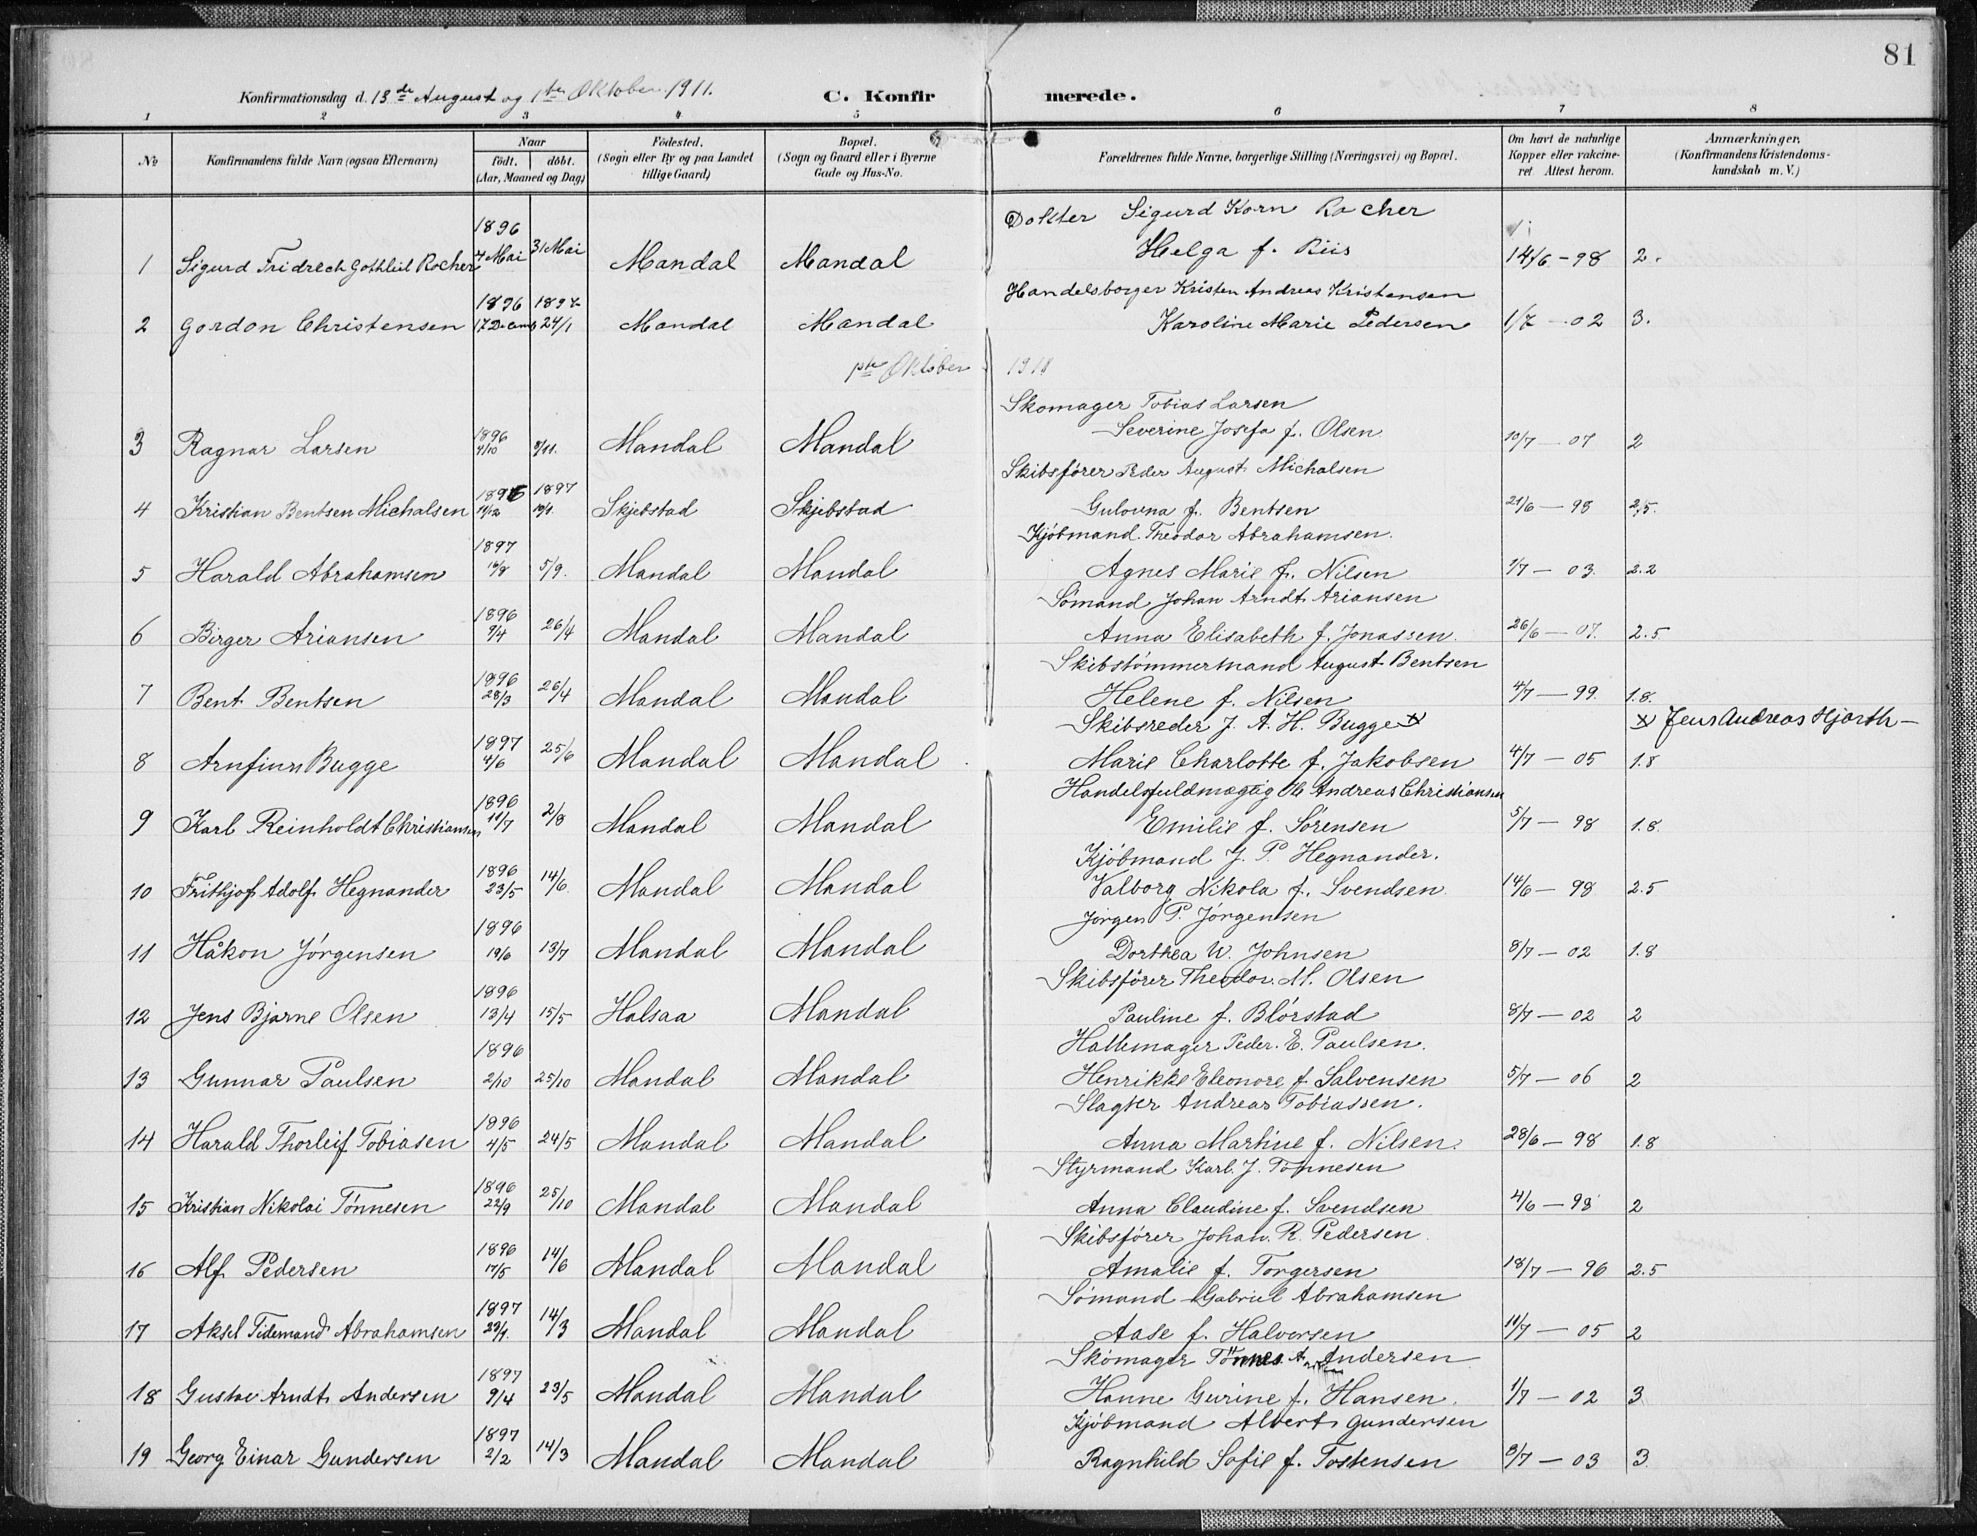 81
Konfirmationsdag d. 13de August og 1ste Oktober 1911. C. Konfirmerede.
1 2 3 4 5 6 7 8
No Konfirmandens fulde Navn (ogsaa Efternavn) Naar født. døbt. (Aar, Maaned og Dag) Fødested. (Sogn eller By og paa Landet tillige Gaard) Bopæl. (Sogn og Gaard eller i Byerne Gade og Hus-No. Forældrenes fulde Navne, borgerlige Stilling (Næringsvei) og Bopæl. Om havt de naturlige Kopper eller vakcineret Attest herom. Anmærkninger. (Konfirmandens Kristendomskundskab m. V.)
1896 Dokter Sigurd Korn Rocher
1 Sigurd Fridrech Gothleil Rocher 7 Mai 31 Mai Mandal Mandal Helga f. Riis 14/6 - 98 2.
1896 1897 Handelsborger Kristen Andreas Kristensen
2 Gordon Christensen 17 Decemb 24/1 Mandal Mandal Karoline Marie Pedersen 1/7 - 02 3.
Oktober
Skomager Tobias Larsen
3 Ragnar Larsen 1896 4/10 8/11. Mandal Mandal Severine Josefa f. Olsen 10/7 - 07 2
1896 1897 Skibsfører Peder August Michalsen
4 Kristian Bentsen Michalsen 14/12 10/1. Skjebstad Skjebstad Gulovna f. Bentsen 21/6 - 98 2,5.
1897 Kjøbmand Theodor Abrahamsen.
5 Harald Abrahamsen 16/8 5/9. Mandal Mandal Agnes Marie f. Nilsen 1/7 - 03. 2.2
1896 Sømand Johan Arndt Ariansen
6 Birger Ariansen 9/4 26/4 Mandal Mandal Anna Elisabeth f. Jonassen. 26/6 - 07. 2.5
1896 Skibstømmermand August Bentsen
7 Bent Bentsen 28/3 26/4 Mandal Mandal Helene f. Nilsen 4/7 - 99. 1.8.
1897 Skibsreder J. A. H. Bugge x x Jens Andreas Hjorth -
8 Arnfinn Bugge 4/6 25/6 Mandal Mandal Marie Charlotte f. Jakobsen 4/7 - 05 1.8
1896 Handelsfuldmægtig Andreas Christiansen
9 Karl Reinholdt Christiansen 11/7 2/8 Mandal Mandal Emilie f. Sørensen 5/7 - 98 1.8.
1896 Kjøbmand J. P. Hegnander.
10 Frithjof Adolf Hegnander 23/5 14/6 Mandal Mandal Valborg Nikola f. Svendsen 14/6 - 98 2.5
1896 Jørgen P. Jørgensen
11 Håkon Jørgensen 19/6 13/7 Mandal Mandal Dorthea W. Johnsen 8/7 - 02 1.8
1896 Skibsfører Theodor M. Olsen
12 Jens Bjarne Olsen 13/4 15/5 Halsaa Mandal Pauline f. Blørstad 8/7 - 02 2
1896 Hattemager Peder. E. Paulsen.
13 Gunnar Paulsen 2/10 25/10 Mandal Mandal Henrikke Eleonore f. Salvensen 5/7 - 06 2
1896 Slagter Andreas Tobiassen.
14 Harald Thorleif Tobiasen 4/5 24/5 Mandal Mandal Anna Martine f. Nilsen. 28/6 - 98 1.8
1896 Styrmand Karl. J. Tønnesen
15 Kristian Nikolai Tønnesen 22/9 25/10 Mandal Mandal Anna Claudine f. Svendsen 4/6 - 98 2
1896 Skibsfører Johan. R. Pedersen.
16 Alf Pedersen 17/5 14/6 Mandal Mandal Amalie f. Torgersen 18/7 - 96 2.5
1897 Sømand Gabriel Abrahamsen
17 Aksel Tidemand Abrahamsen 23/1. 14/3 Mandal Mandal Aase f. Halvorsen 11/7 - 05 2
1897 Skomager Tönnes A. Andersen
18 Gustav Arndt Andersen 9/4 23/5 Mandal Mandal Hanne Gurine f. Hansen. 1/7 - 02 3
1897 Kjøbmand Alvert Gundersen
19 Georg Einar Gundersen 2/2 14/3 Mandal Mandal Ragnhild Sofie f. Tostensen 3/7 - 03 3.